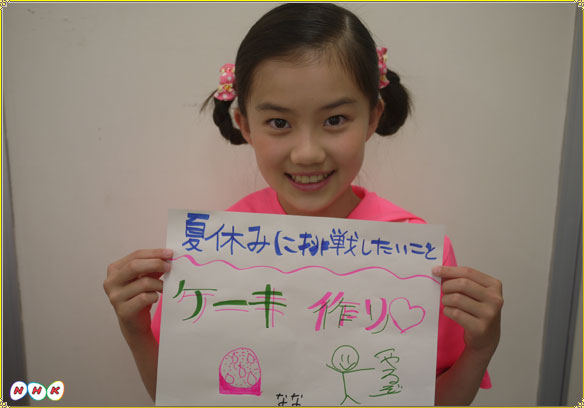 夏休みに挑戦したいこと
ケーキ 作り♡
やるぞ
なな
NHK